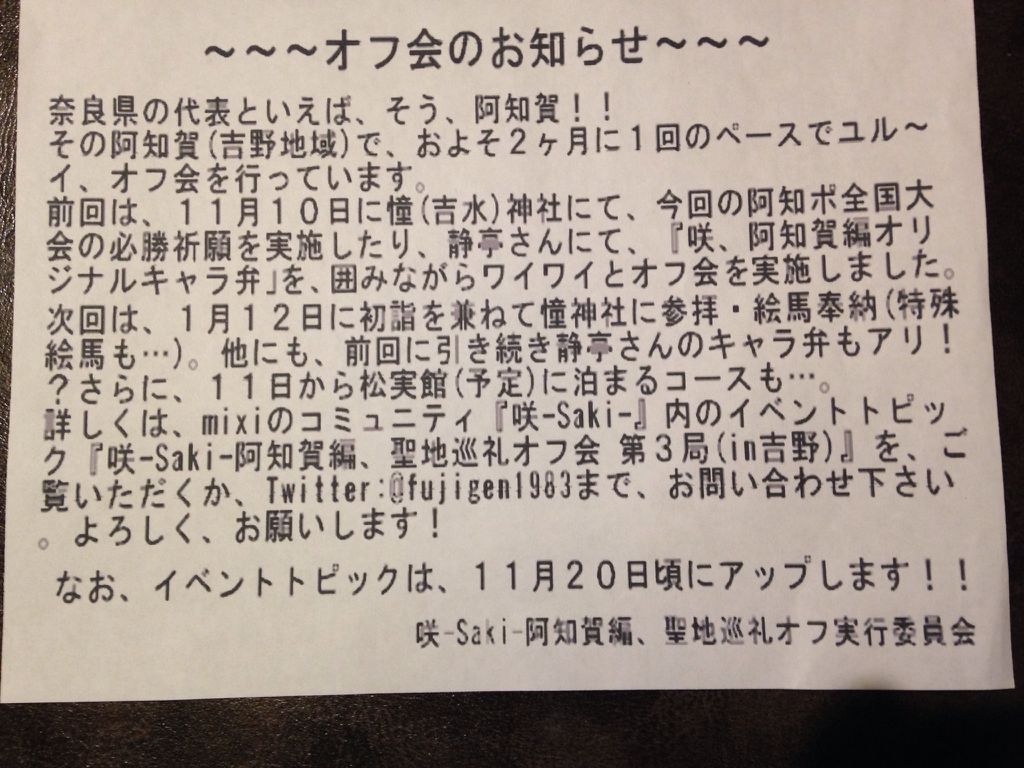 ～～～オフ会のお知らせ～～～
奈良県の代表といえば、そう、阿知賀！！
その阿知賀(吉野地域)で、およそ２ヶ月に１回のペースでユル～
イ、オフ会を行っています。
前回は、１１月１０日に憧(吉水)神社にて、今回の阿知ポ全国大
会の必勝祈願を実施したり、静亭さんにて、『咲、阿知賀編オリ
ジナルキャラ弁」を、囲みながらワイワイとオフ会を実施しました。
次回は、１月１２日に初詣を兼ねて憧神社に参拝・絵馬奉納(特殊
絵馬も…)。他にも、前回に引き続き静亭さんのキャラ弁もアリ！
？さらに、１１日から松実館(予定)に泊まるコースも…。
詳しくは、mixiのコミュニティ『咲-Saki-』内のイベントトピッ
ク『咲-Saki-阿知賀編、聖地巡礼オフ会 第３局(in吉野)』を、ご
覧いただくか、Twitter:@fujigen1983まで、お問い合わせ下さい
。よろしく、お願いします！
なお、イベントトピックは、１１月２０日頃にアップします！！
咲-Saki-阿知賀編、聖地巡礼オフ実行委員会